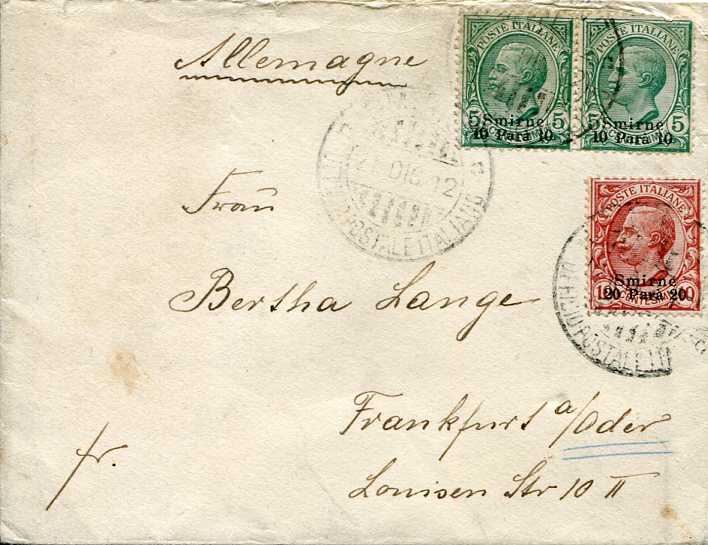 Allemagne
POSTE ITALIANE
5 Smirne 5
10 Para 10
POSTE ITALIANE
5 Smirne 5
10 Para 10
DIC 12
POSTALE ITALIANO
Frau
POSTE ITALIANE
Smirne
20 Para 20
POSTALE ITA
Bertha Lange
Frankfurt a/Oder
fr.
Louisen Str 10 II